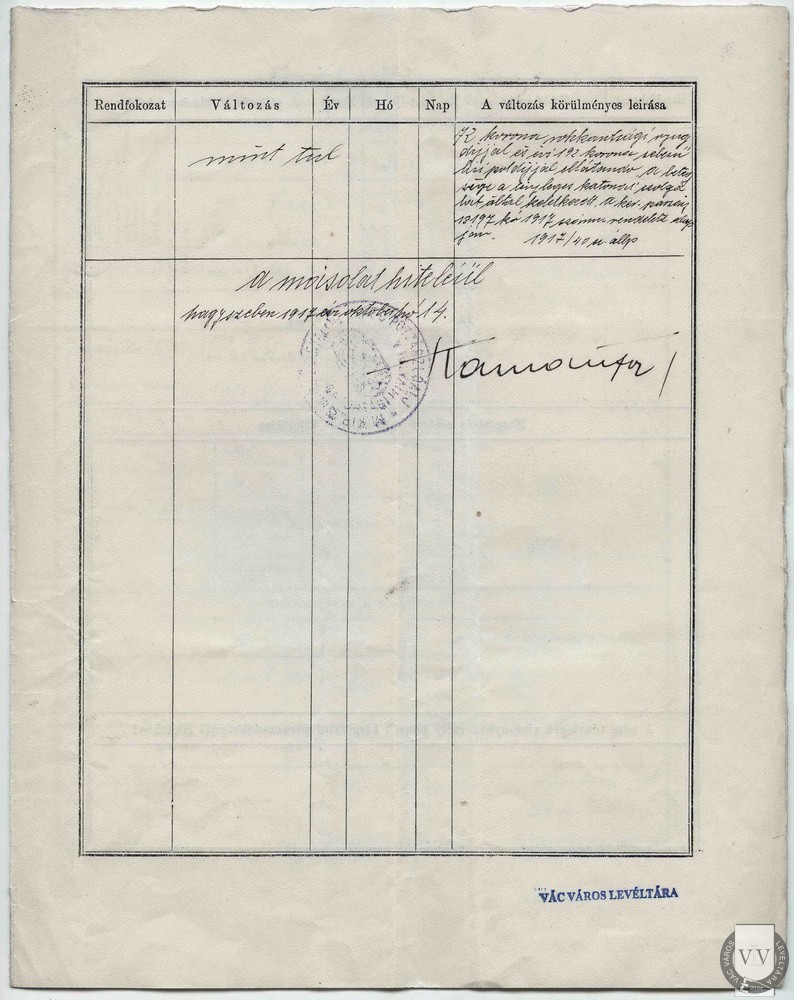 Rendfokozat Változás Év Hó Nap A változás körülményes leirása
mint tul
72 korona rokkantsági nyug
díjjal és évi 192 korona sebesü
lési pótdíjjal ellátandó, a beteg
sége a tényleges katonai szolgá
lat által keletkezett. a ker. paran
13197 1917 számu rendelete alap
ján. 1917/40
a másolat hiteléül
Nagyszeben 1917 évi október hó 14.
VÁC VÁROS LEVÉLTÁRA
VÁC VÁROS LEVÉLTÁRA
VV